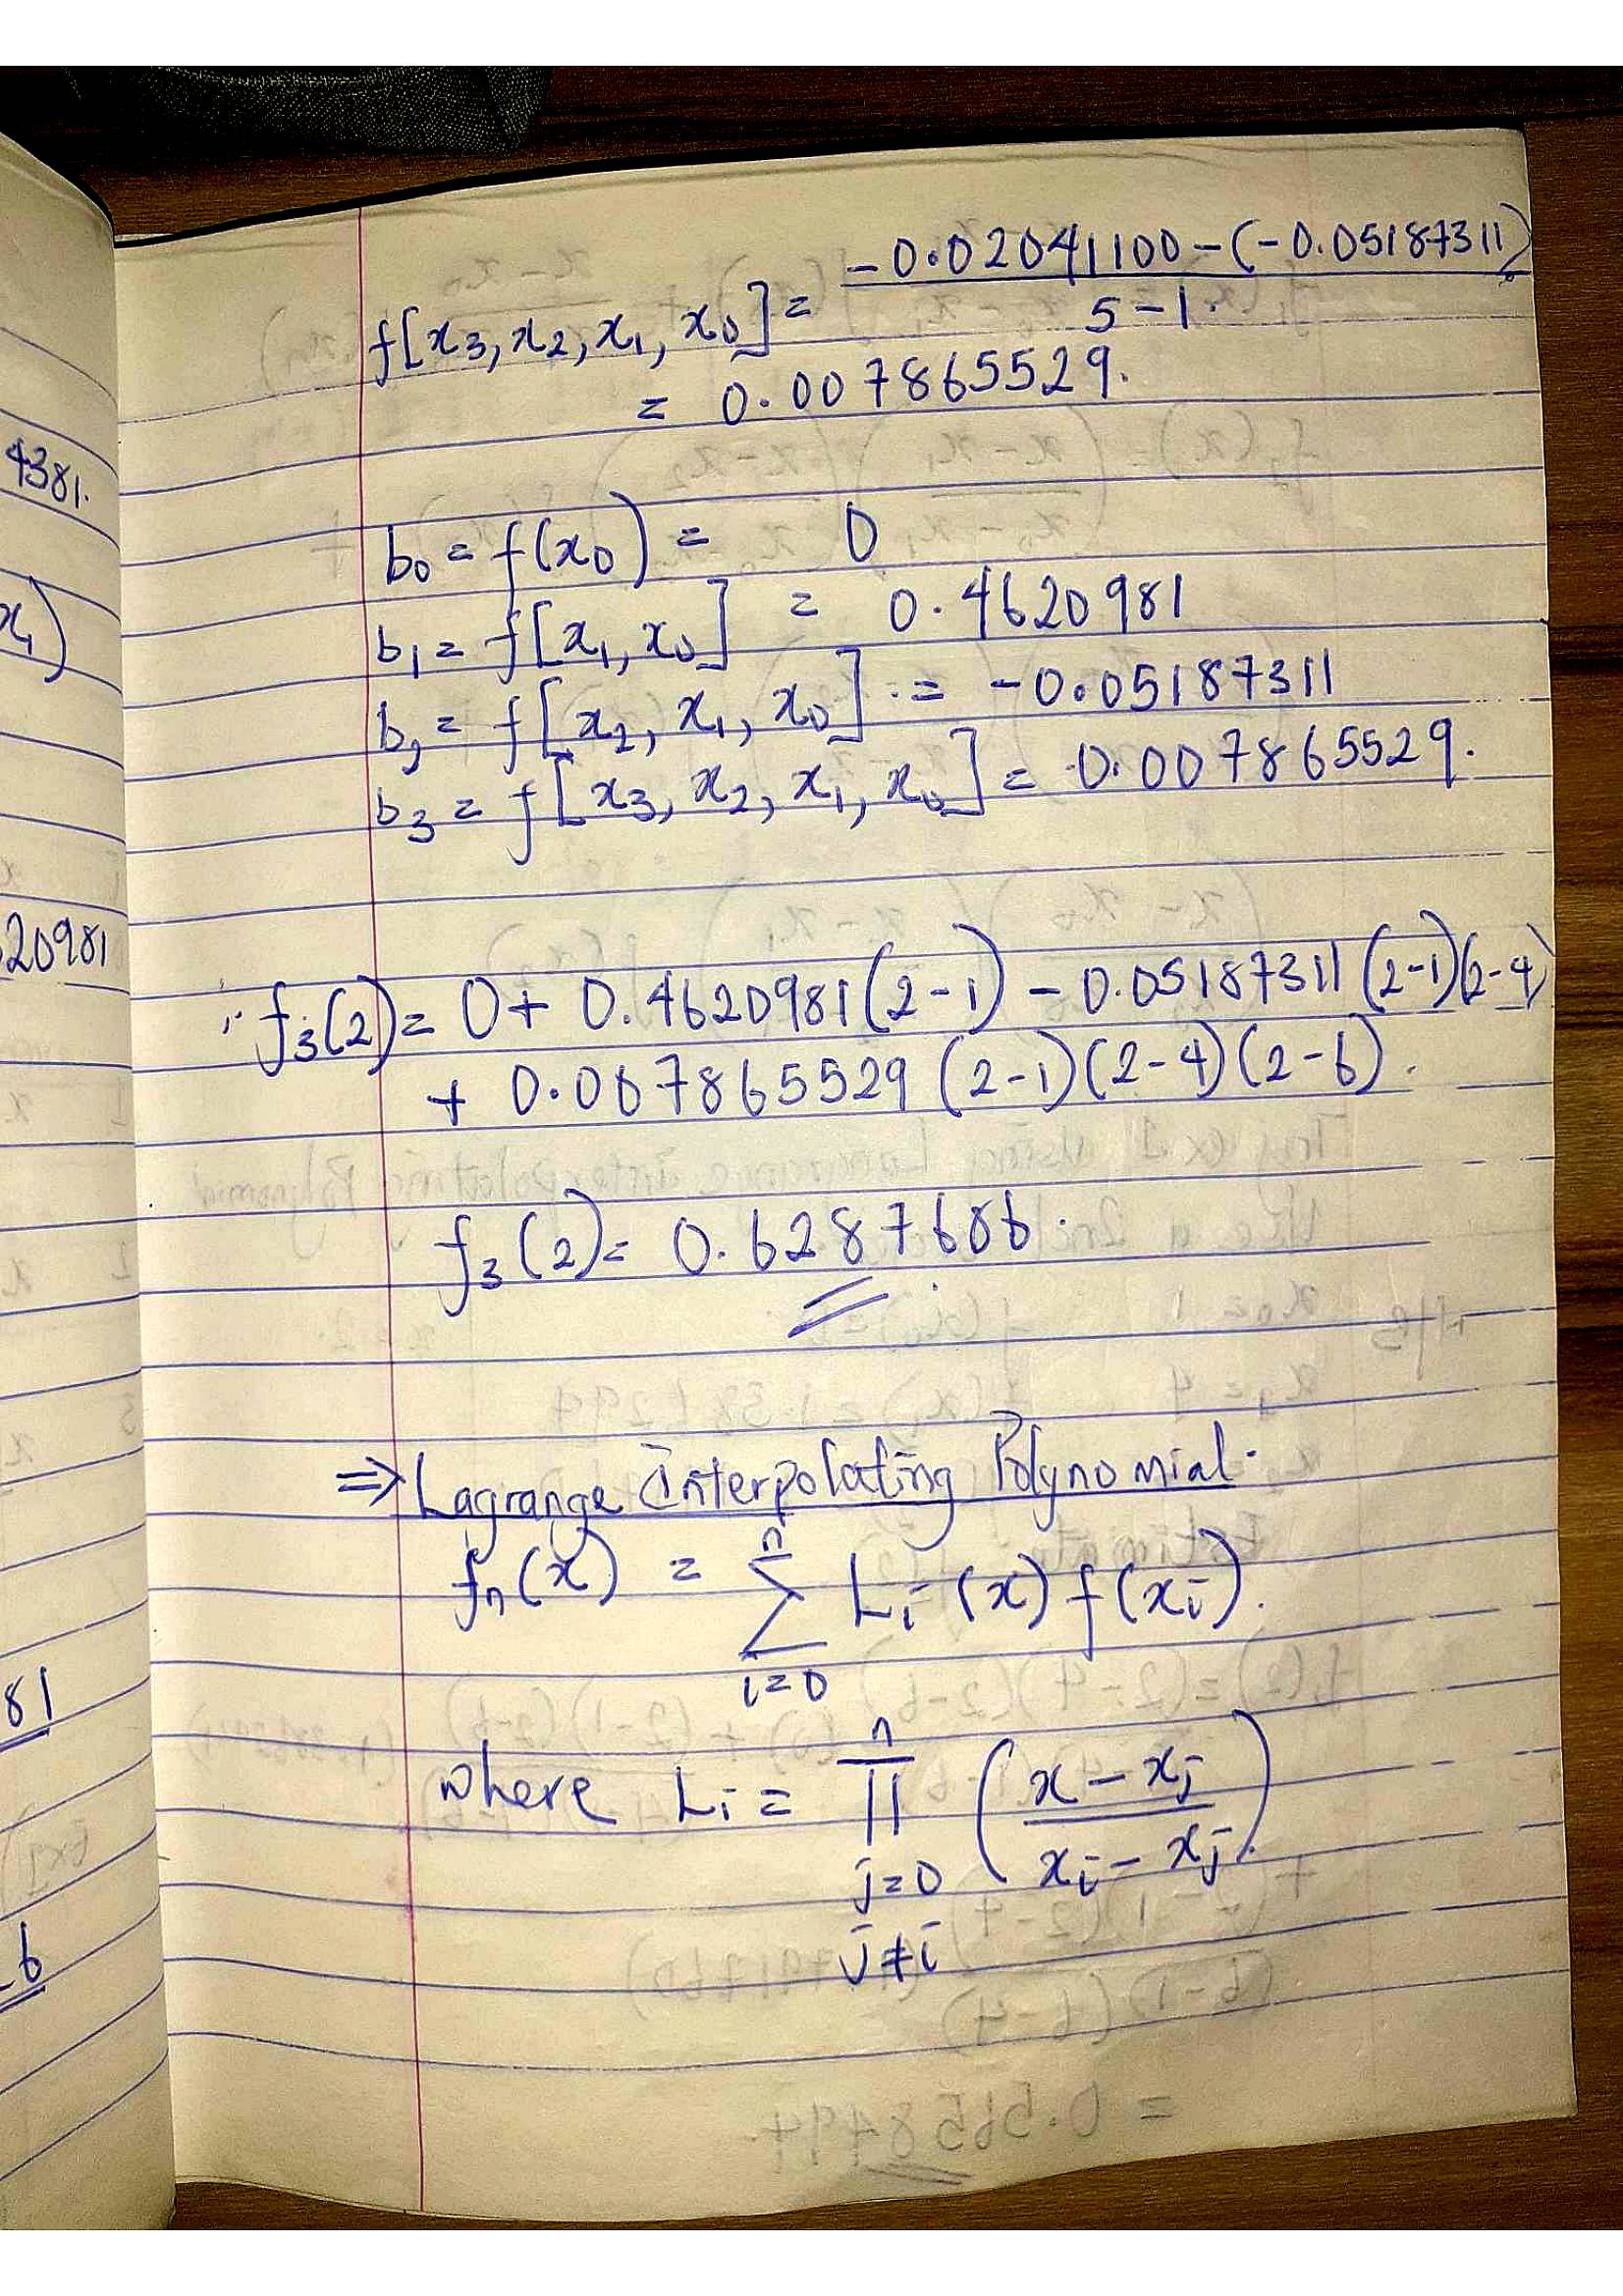 f[x₃, x₂, x₁, x₀] = (-0.02041100 - (-0.05187311)) / (5 - 1)
= 0.007865529.
b₀ = f(x₀) = 0
b₁ = f[x₁, x₀] = 0.4620981
b₂ = f[x₂, x₁, x₀] = -0.05187311
b₃ = f[x₃, x₂, x₁, x₀] = 0.007865529.
∴ f₃(2) = 0 + 0.4620981(2-1) - 0.05187311(2-1)(2-4)
+ 0.007865529(2-1)(2-4)(2-6).
f₃(2) = 0.6287686.
⇒ Lagrange Interpolating Polynomial.
fₙ(x) = Σ_{i=0}^{n} Lᵢ(x) f(xᵢ).
where Lᵢ = ∏_{j=0, j≠i}^{n} ((x - xⱼ) / (xᵢ - xⱼ)).
4381.
x₁)
20981
81
-6